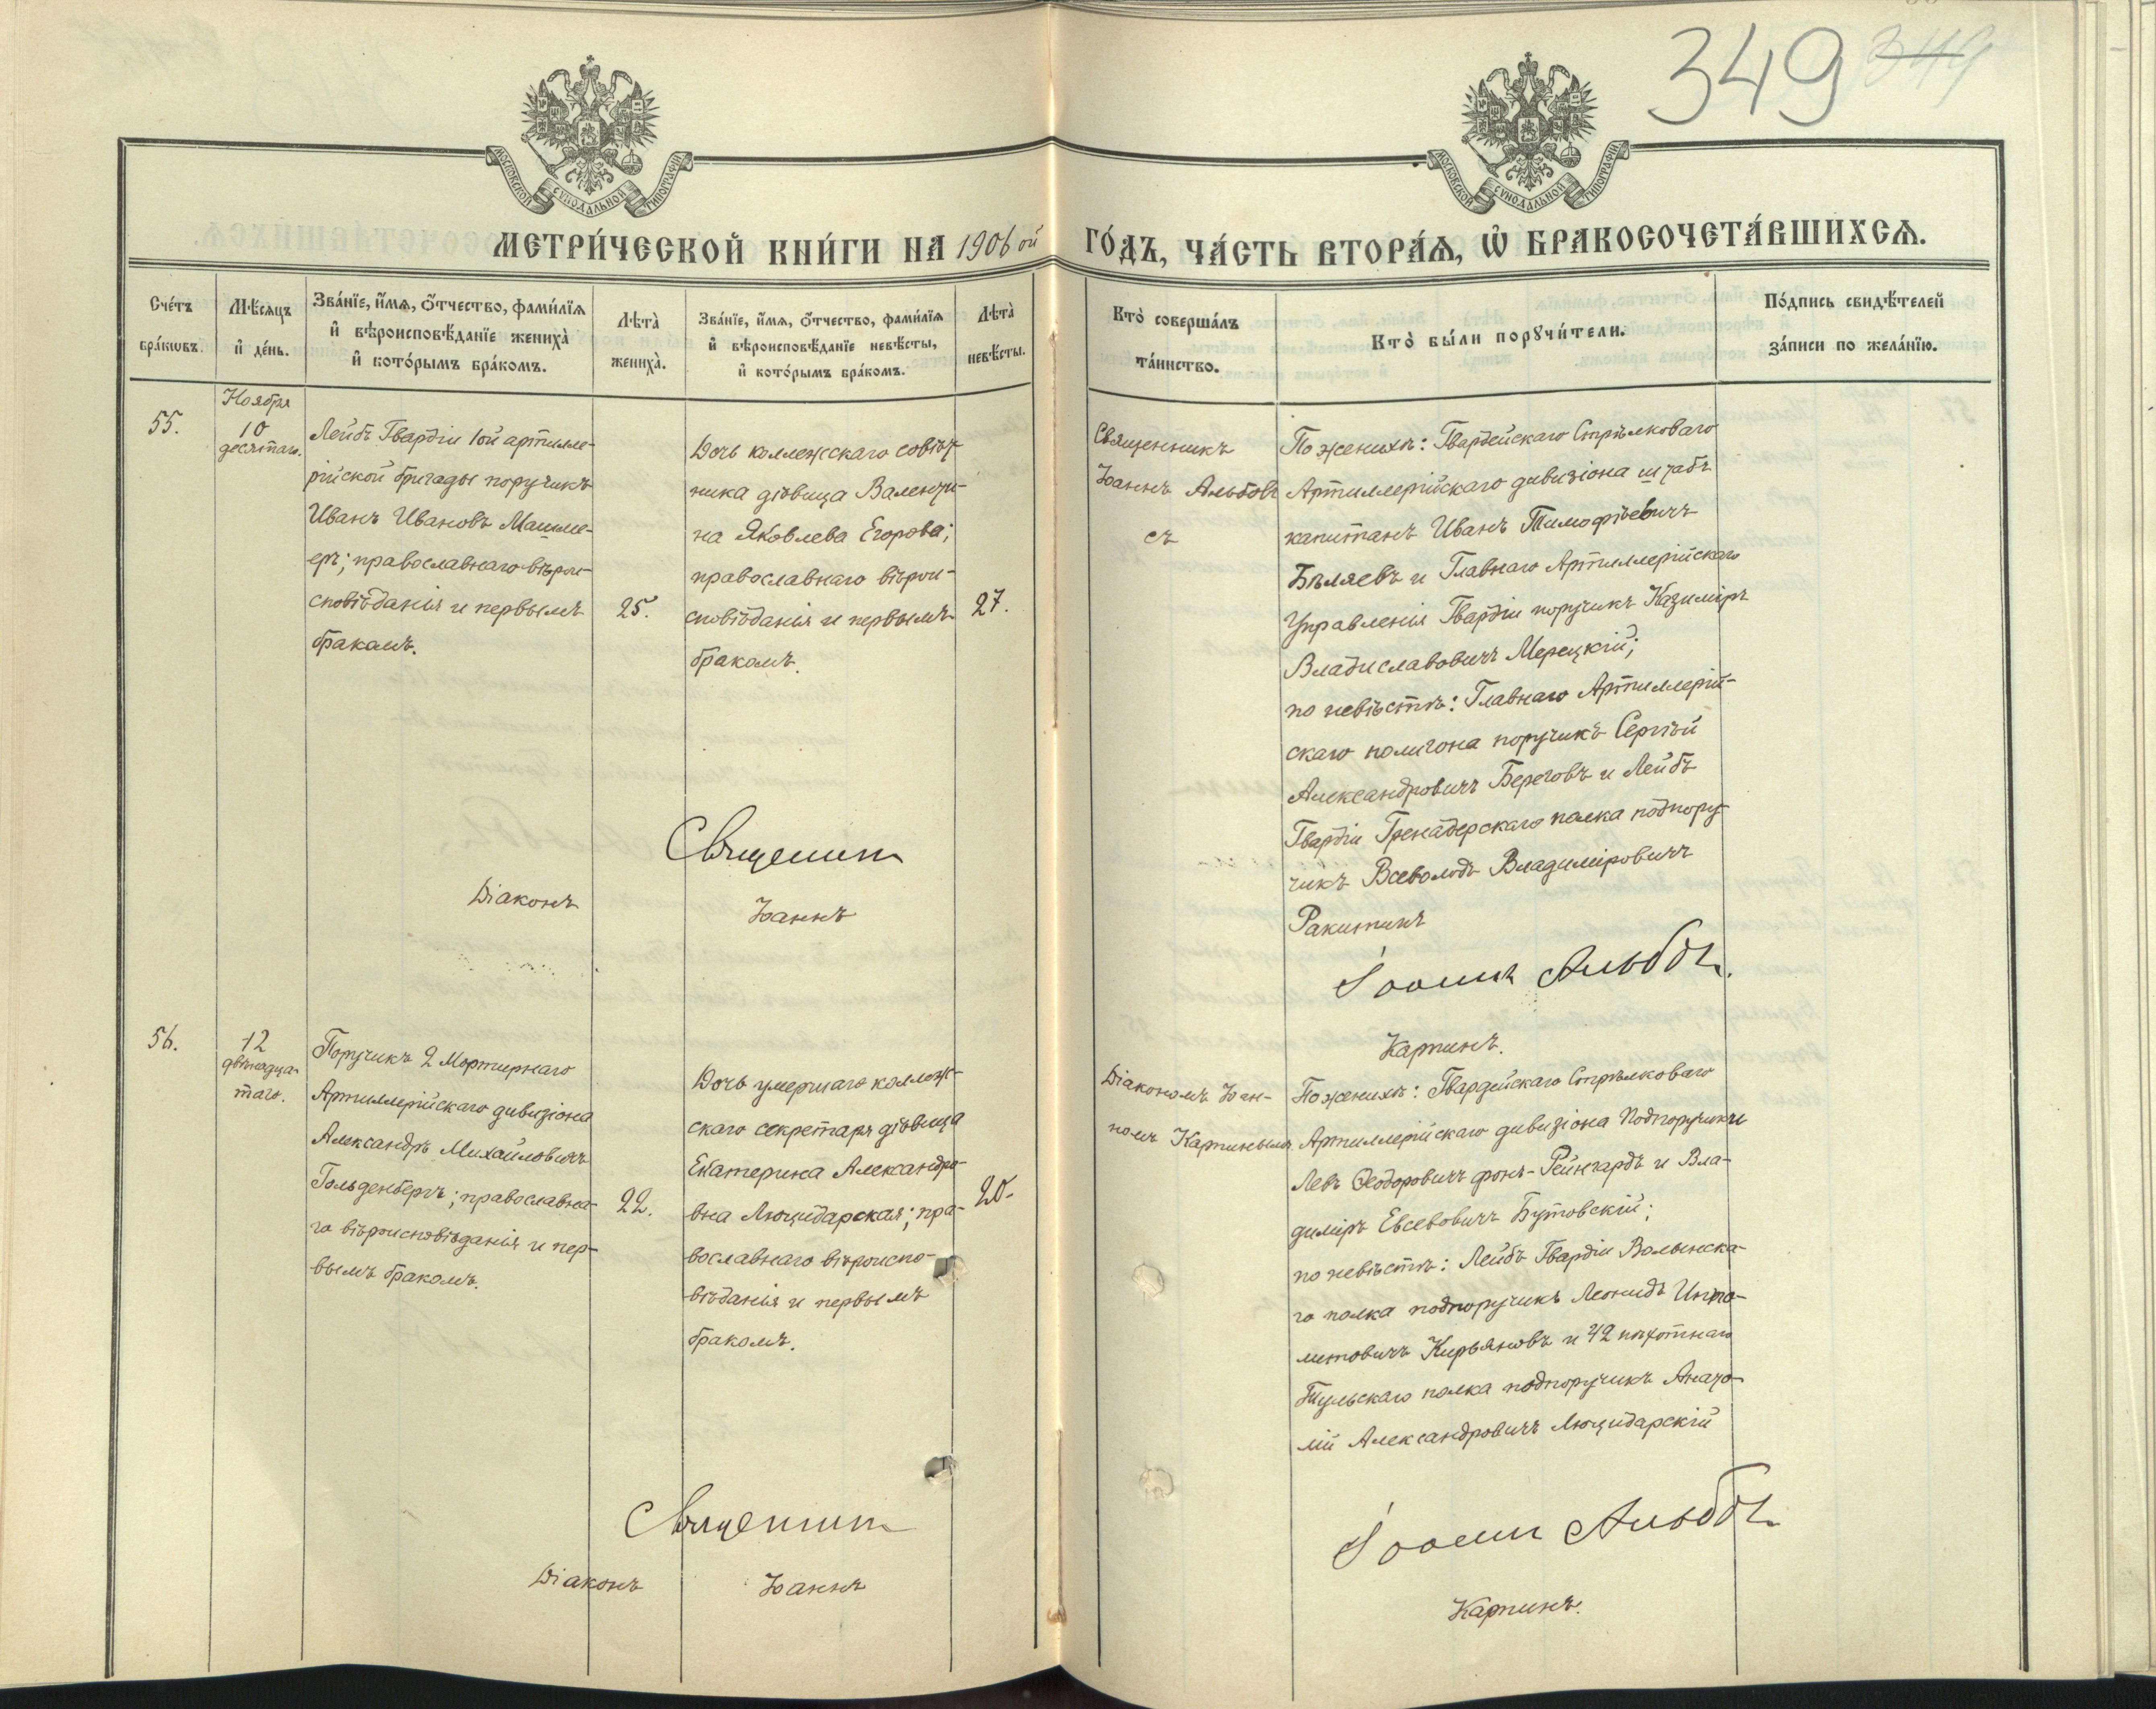 349 349
МОСКОВСКОЙ СѴНОДАЛЬНОЙ ТИПОГРАФІИ
МОСКОВСКОЙ СѴНОДАЛЬНОЙ ТИПОГРАФІИ
МЕТРИ́ЧЕСКОЙ КНИ́ГИ НА 1906ой ГО́ДЪ, ЧА́СТЬ ВТОРА́Ѧ, Ѡ҆ БРАКОСОЧЕТА́ВШИХСѦ.
Сче́тъ
бра́кѡвъ.
Мѣ́сѧцъ
и҆ де́нь.
Зва́нїе, и҆́мѧ, о҆́тчество, фами́лїѧ
и҆ вѣроисповѣ́данїе жениха̀
и҆ кото́рымъ бра́комъ.
Лѣта̀
жениха̀.
Зва́нїе, и҆́мѧ, о҆́тчество, фами́лїѧ
и҆ вѣроисповѣ́данїе невѣ́сты,
и҆ кото́рымъ бра́комъ.
Лѣта̀
невѣ́сты.
Кто̀ соверша́лъ
та́инство.
Кто̀ бы́ли порꙋчи́тели.
По́дпись свидѣ́телей
за́писи по жела́нїю.
55.
Ноября
10
десятаго.
Лейбъ Гвардіи 1ой артилле-
рійской бригады поручикъ
Иванъ Ивановъ
еръ; православнаго вѣрои-
сповѣданія и первымъ
бракомъ.
25.
Дочь коллежскаго совѣт-
ника дѣвица Валенти-
на Яковлева Егорова;
православнаго вѣрои-
сповѣданія и первымъ
бракомъ.
27.
Священникъ
Іоаннъ Альбовъ
съ
По женихѣ: Гвардейскаго Стрѣлковаго
Артиллерійскаго дивизіона штабъ
капитанъ Иванъ Тимофѣевичъ
Бѣляевъ и Главнаго Артиллерійскаго
Управленія Гвардіи поручикъ Казиміръ
Владиславовичъ Мерецкій;
по невѣстѣ: Главнаго Артиллерій-
скаго полигона поручикъ Сергѣй
Александровичъ Береговъ и Лейбъ
Гвардіи Гренадерскаго полка подпору-
чикъ Всеволодъ Владиміровичъ
Ракитинъ
Священникъ Іоаннъ Альбовъ.
Діаконъ Іоаннъ Карпинъ.
56.
12
двѣнадца-
таго.
Поручикъ 2 Мортирнаго
Артиллерійскаго дивизіона
Александръ Михайловичъ
Гольденбергъ; православна-
го вѣроисповѣданія и пер-
вымъ бракомъ.
22.
Дочь умершаго коллеж-
скаго секретаря дѣвица
Екатерина Александро-
вна Люцидарская; пра-
вославнаго вѣроиспо-
вѣданія и первымъ
бракомъ.
20.
Діакономъ Іоан-
номъ Карпинымъ
По женихѣ: Гвардейскаго Стрѣлковаго
Артиллерійскаго дивизіона Подпоручики
Левъ Ѳеодоровичъ фонъ-Рейнгардъ и Вла-
диміръ Евсевовичъ Бутовскій;
по невѣстѣ: Лейбъ Гвардіи Волынска-
го полка подпоручикъ Леонидъ Иппо-
литовичъ Кирьяновъ и 42 пѣхотнаго
Тульскаго полка подпоручикъ Анато-
лій Александровичъ Люцидарскій
Священникъ Іоаннъ Альбовъ
Діаконъ Іоаннъ Карпинъ.